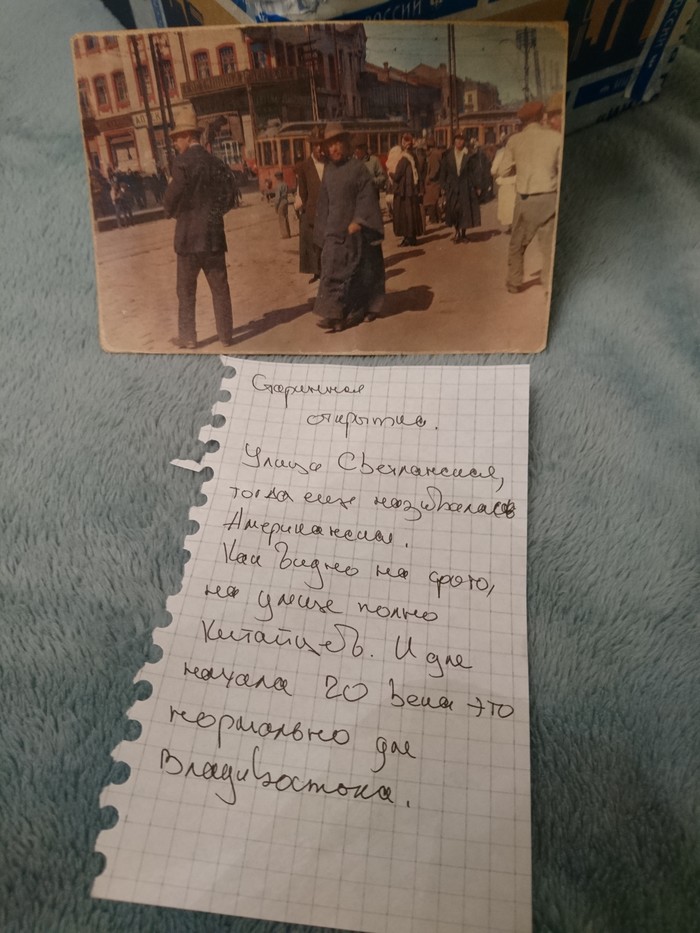 РОССИИ
Старинная
открытка.
Улица Светланская,
тогда еще называлась
Американская.
Как видно на фото,
на улице полно
Китайцевъ. И для
начала 20 века это
нормально для
Владивостока.